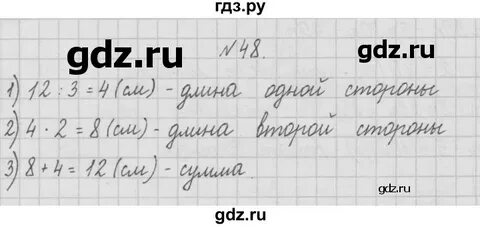 гдз.ру
gdz.ru gdz.ru
№48.
1) 12 : 3 = 4 (см) - длина одной стороны
2) 4 · 2 = 8 (см) - длина второй стороны
3) 8 + 4 = 12 (см) - сумма.
gdz.ru
gdz.ru gdz.ru